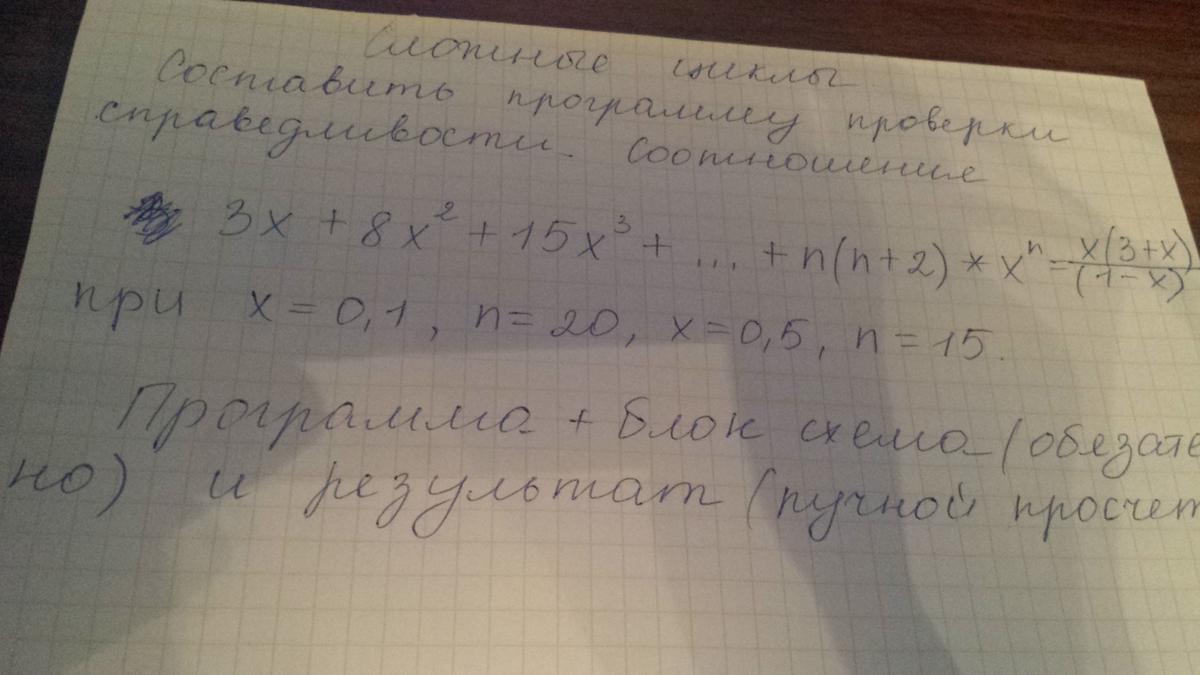 Сложные циклы
Составить программу проверки
справедливости. Соотношения
3x + 8x² + 15x³ + ... + n(n+2) * xⁿ = x(3+x)/(1-x)
при x = 0,1, n = 20, x = 0,5, n = 15.
Программа + блок схема (обязате
но) и результат (ручной просчет